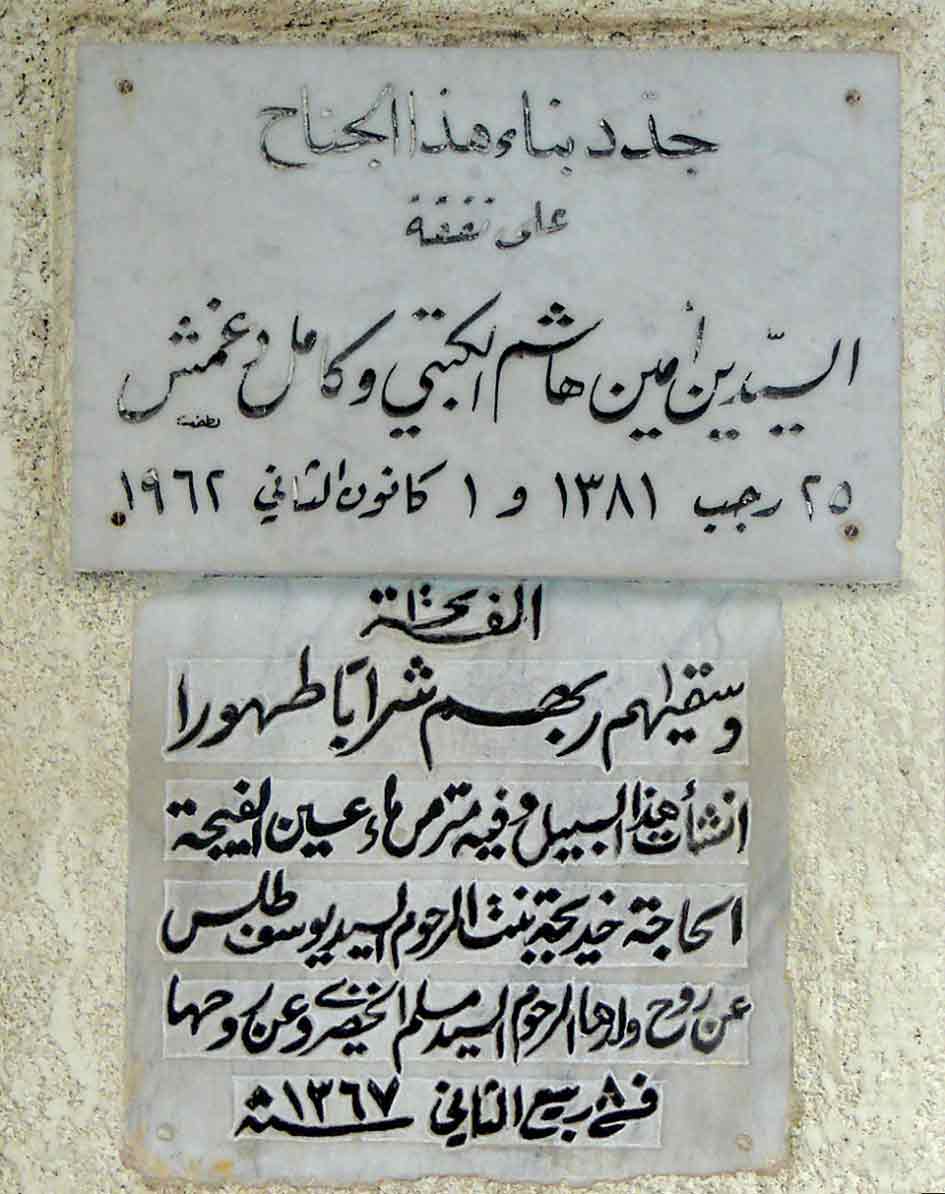 جدّد بناء هذا الجناح
على نفقة
السيّدين أمين هاشم الكتبي وكامل دغمش
٢٥ رجب ١٣٨١ و ١ كانون الثاني ١٩٦٢
الفاتحة
وسقٰهم ربهم شرابًا طهورا
انشأت هذا السبيل وفيه متر من ماء عين الفيجة
الحاجة خديجة بنت المرحوم السيد يوسف طلس
عن روح ولدها المرحوم السيد مسلم الحضري وعن روحها
في ٨ ربيع الثاني سنة ١٣٦٧